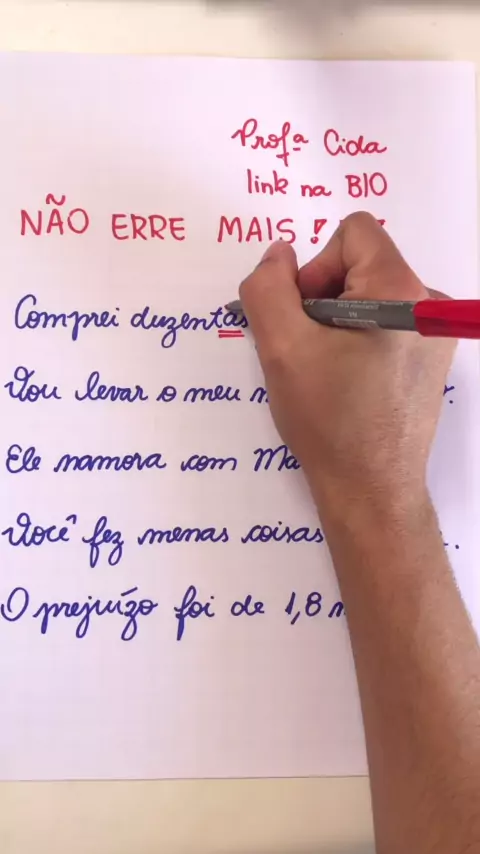 Profª Cida
link na BIO
NÃO ERRE MAIS !
Comprei duzentas
Vou levar o meu
Ele namora com
Você fez menas coisas
O prejuízo foi de 1,8